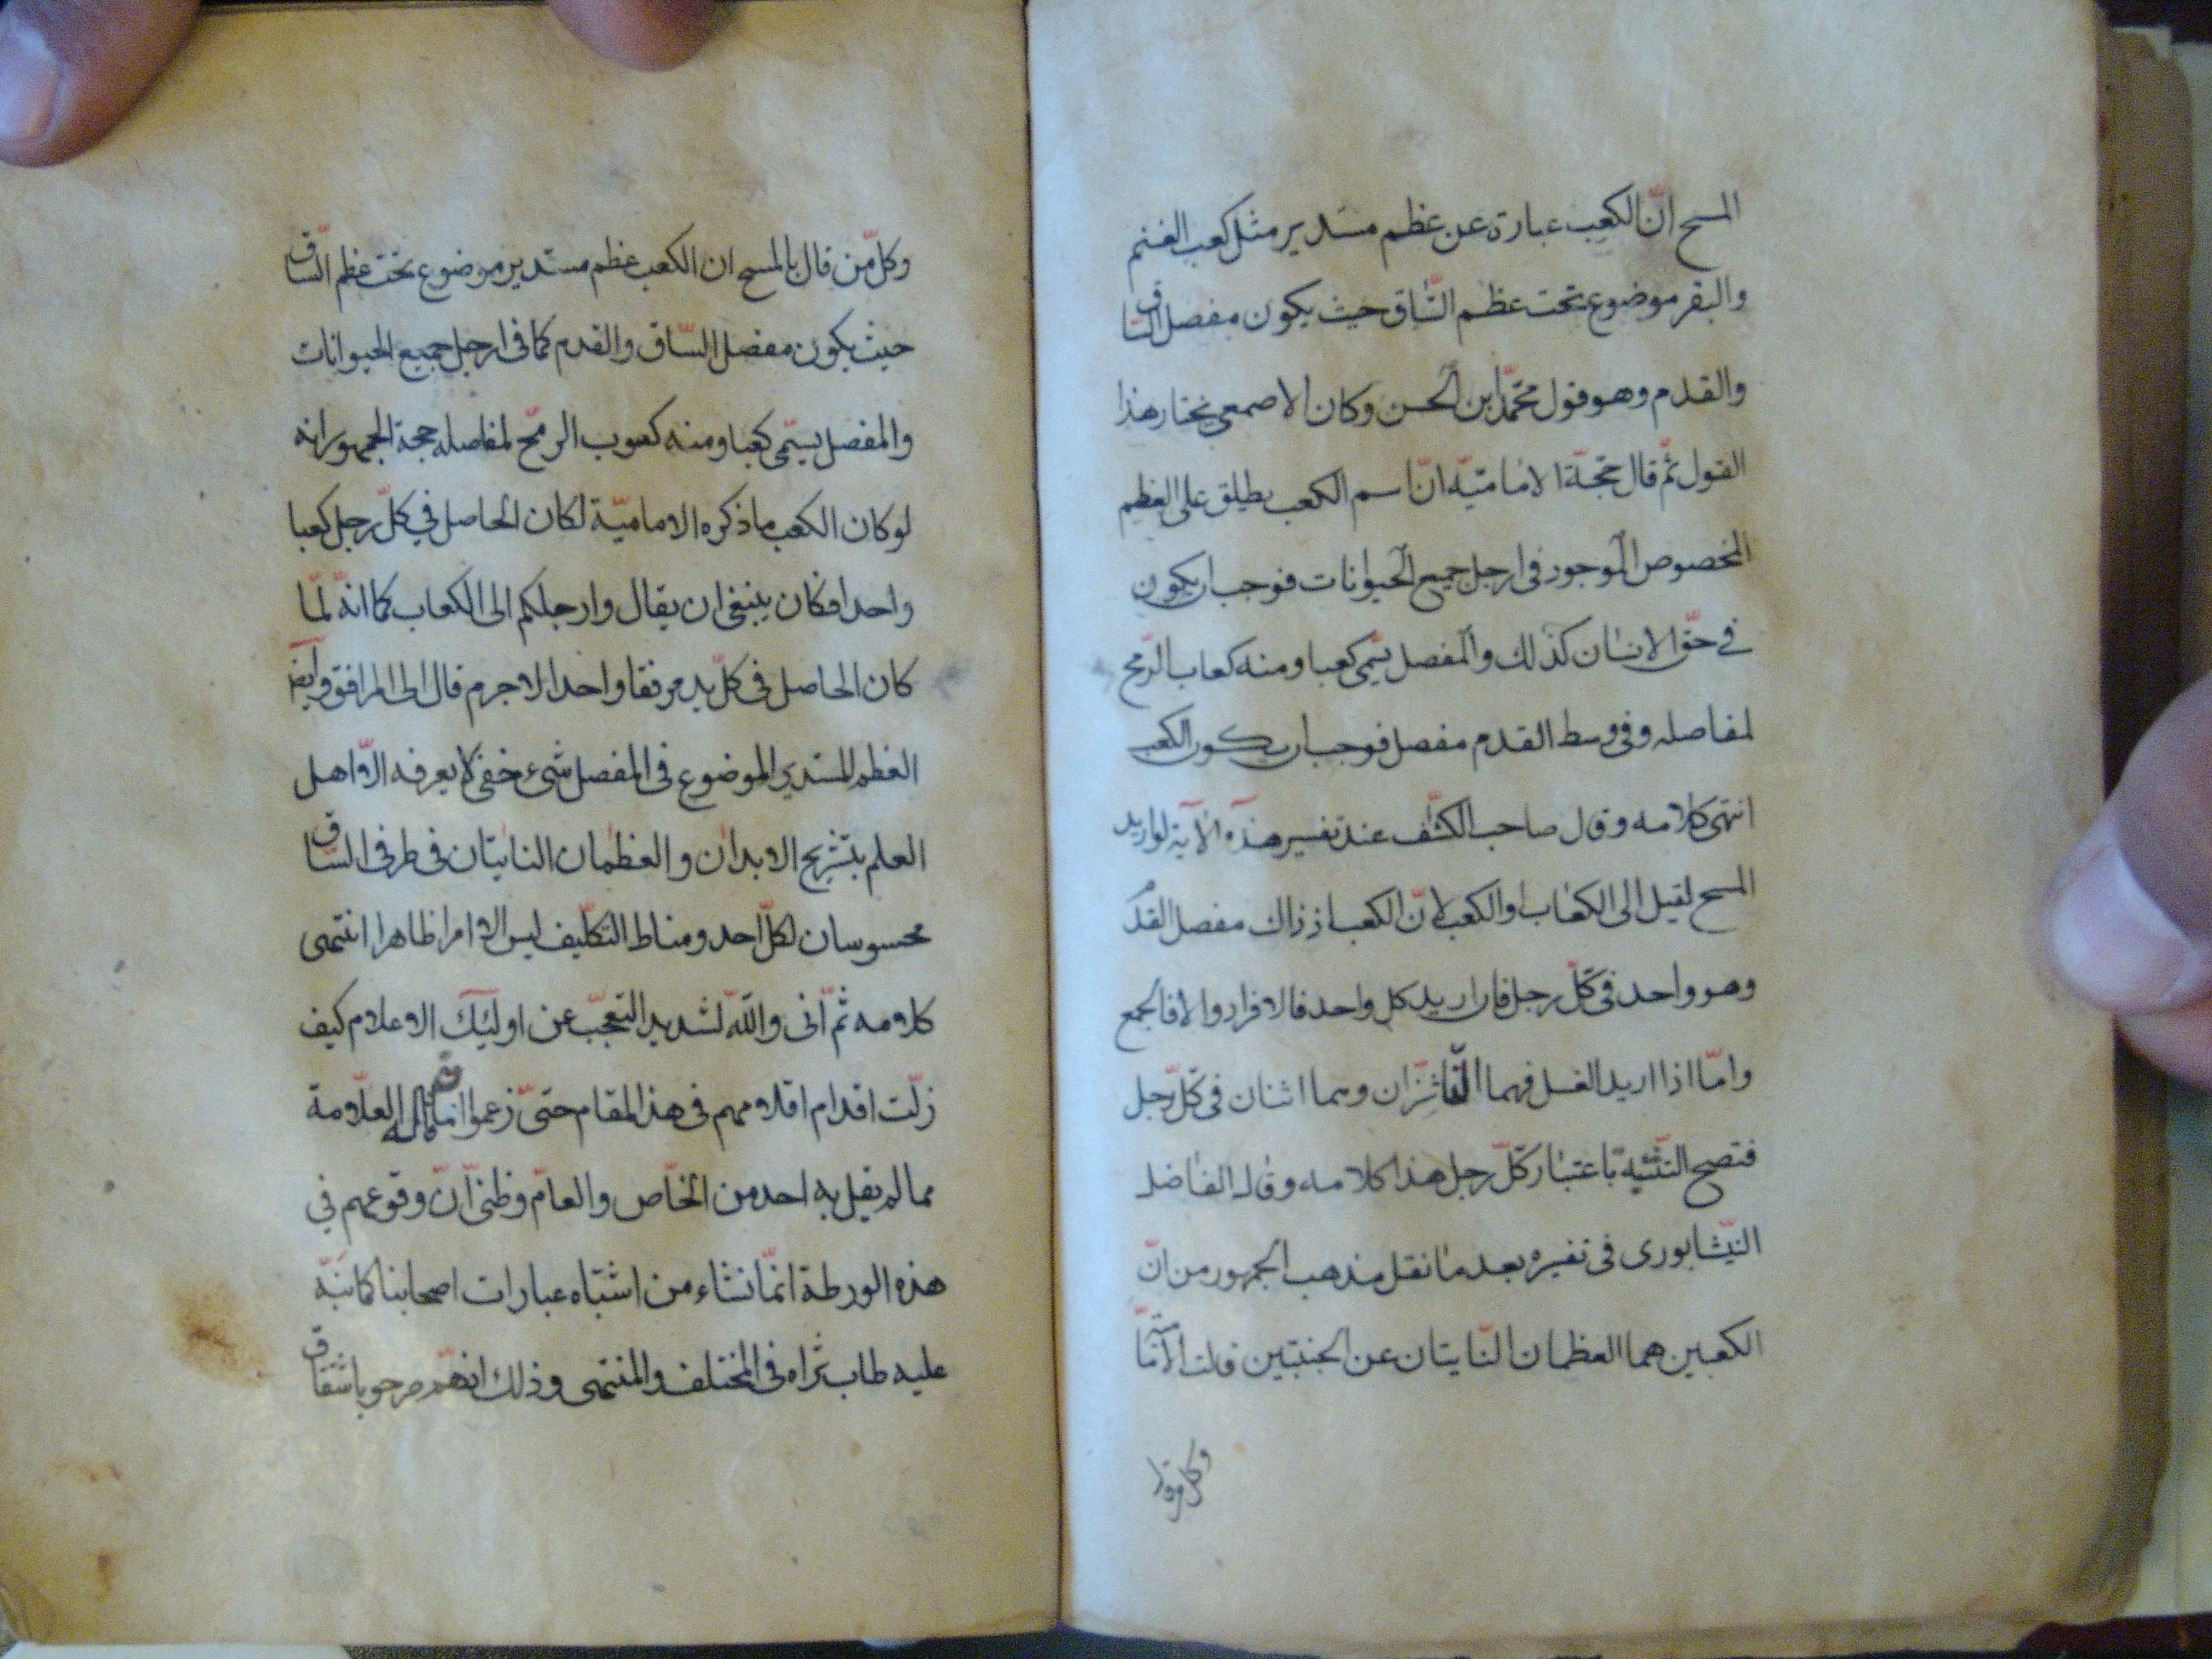 المسح انّ الكعب عبارة عن عظم مستدير مثل كعب الغنم
والبقر موضوع تحت عظم السّاق حيث يكون مفصل السّاق
والقدم وهو قول محمّد ابن الحسن وكان الاصمعى يختار هذا
القول ثمّ قال حجّة الاماميّة انّ اسم الكعب يطلق على العظم
المخصوص الموجود فى ارجل جميع الحيوانات فوجب ان يكون
فى حقّ الانسان كذلك والمفصل يسمّى كعبا ومنه كعاب الرّمح
لمفاصله وفى وسط القدم مفصل فوجب ان يكون الكعب
انتهى كلامه وقال صاحب الكشّاف عند تفسير هذه الآية لو اريد
المسح لقيل الى الكعاب او الكعب لانّ الكعب اذ ذاك مفصل القدم
وهو واحد فى كلّ رجل فان اريد كل واحد فالافراد والا فالجمع
وامّا اذا اريد الغسل فهما النّاشزان وهما اثنان فى كلّ رجل
فتصح التّثنية باعتبار كلّ رجل هذا كلامه وقال الفاضل
النّيشابورى فى تفسيره بعد ما نقل مذهب الجمهور من انّ
الكعبين هما العظمان النّايتان عن الجنبتين قلت الاماميّة
وكل من قال
وكلّ من قال بالمسح ان الكعب عظم مستدير موضوع تحت عظم السّاق
حيث يكون مفصل السّاق والقدم كما فى ارجل جميع الحيوانات
والمفصل يسمّى كعبا ومنه كعوب الرمح لمفاصله حجة الجمهور انه
لو كان الكعب ما ذكره الاماميّة لكان الحاصل فى كلّ رجل كعبا
واحدا فكان ينبغى ان يقال وارجلكم الى الكعاب كما انّه لمّا
كان الحاصل فى كلّ يد مرفقا واحدا لاجرم قال الى المرافق وايضا
العظم المستدير الموضوع فى المفصل شىء خفى لا يعرفه الّا اهل
العلم بتشريح الابدان والعظمان الناتيان فى طرفى السّاق
محسوسان لكلّ احد ومناط التكليف ليس الا امرا ظاهرا انتهى
كلامه ثمّ انّى واللّه لشديد التعجّب عن اولئك الاعلام كيف
زلّت اقدام اقلامهم فى هذا المقام حتّى زعموا انّ ما قاله العلّامة
مما لم يقل به احد من الخاّص والعامّ وظنى انّ وقوعهم فى
هذه الورطة انمّا نشاء من اشتباه عبارات اصحابنا كما نبّه
عليه طاب ثراه فى المختلف والمنتهى وذلك انهّم صرحو باشتقاق